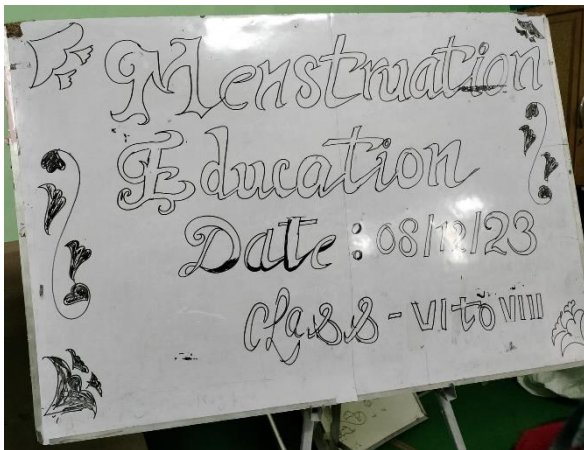 Menstruation
Education
Date : 08/12/23
Class - VI to VIII